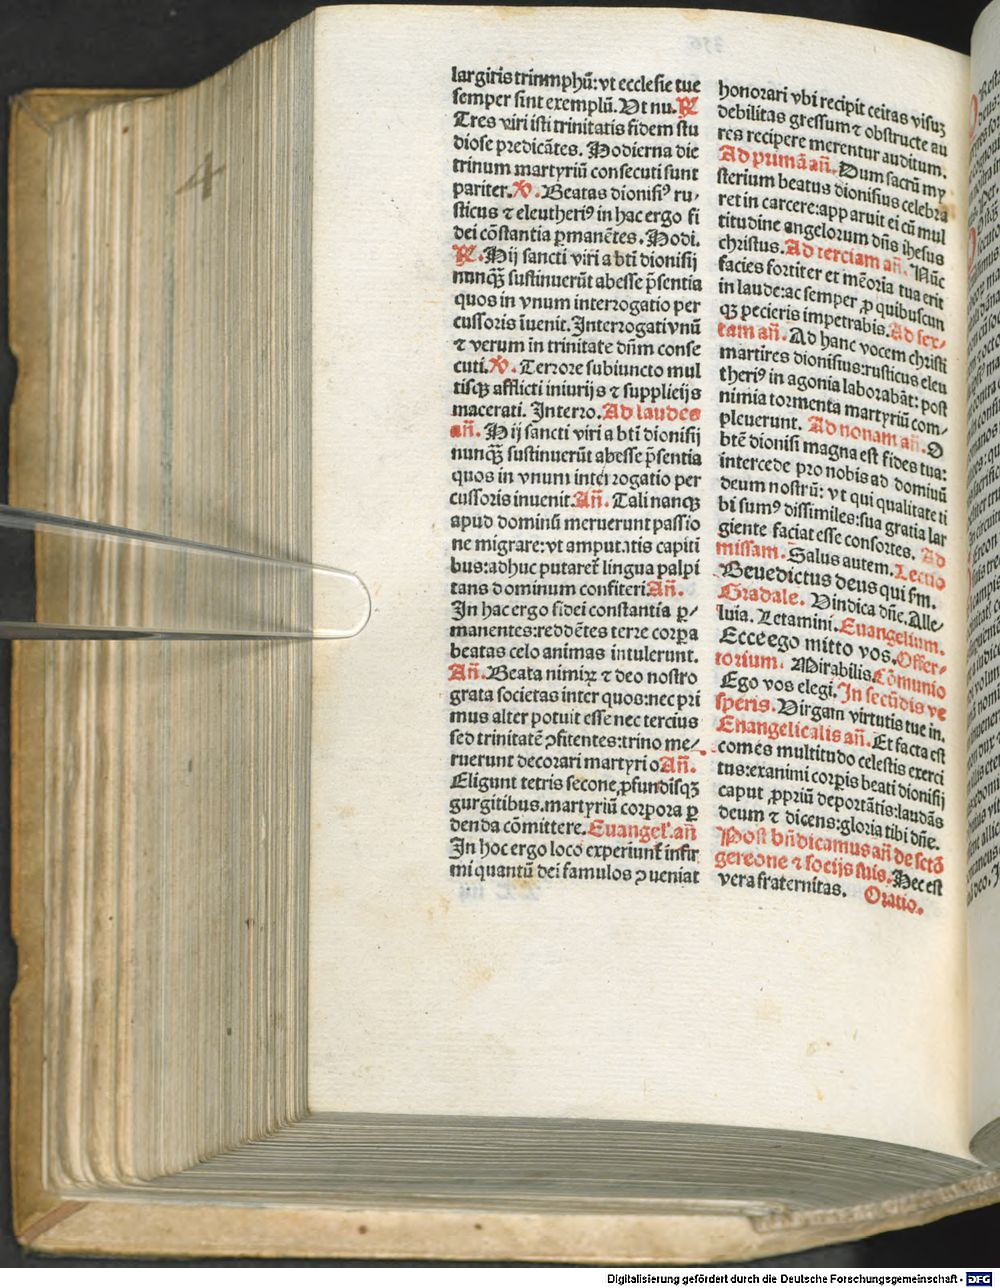 4
largitis triumphū: vt ecclesie tue
semper sint exemplū. Vt nu. R
Tres viri isti trinitatis fidem stu
diose predicātes. Hodierna die
trinum martyriū consecuti sunt
pariter. V. Beatas dionisiꝰ ru⸗
sticus ⁊ eleutheriꝰ in hac ergo fi
dei cōstantia ꝑmanētes. Hodi.
R. Hij sancti viri a bt̄i dionisij
nunqꝫ̄ sustinuerūt abesse p̄sentia
quos in vnum interrogatio per
cussoris īuenit. Interrogati vnū
⁊ verum in trinitate dn̄m conse
cuti. V. Terrore subiuncto mul
tisqꝫ afflicti iniurijs ⁊ supplicijs
macerati. Interro. Ad laudes
an̄. Hij sancti viri a bt̄i dionisij
nunqꝫ̄ sustinuerūt abesse p̄sentia
quos in vnum interrogatio per
cussoris inuenit. An̄. Tali nanqꝫ
apud dominū meruerunt passio
ne migrare: vt amputatis capiti
bus: adhuc putaret᷑ lingua palpi
tans dominum confiteri An̄.
In hac ergo fidei constantia ꝑ⸗
manentes: reddētes terre corꝑa
beatas celo animas intulerunt.
An̄. Beata nimiꝝ ⁊ deo nostro
grata societas inter quos: nec pri
mus alter potuit esse nec tercius
sed trinitatē ꝯfitentes: trino me⸗
ruerunt decorari martyrio An̄.
Eligunt tetris secone, ꝓfundisqꝫ
gurgitibus. martyriū corpora ꝑ
denda cōmittere. Euangel'. an̄
In hoc ergo loco experiunt᷑ infir
mi quantū dei famulos ꝯueniat
honorari vbi recipit cecitas visuꝫ
debilitas gressum ⁊ obstructe au
res recipere merentur auditum.
Ad primā an̄. Dum sacrū my
sterium beatus dionisius celebra
ret in carcere: apparuit ei cū mul
titudine angelorum dn̄s ihesus
christus. Ad terciam an̄. Nūc
facies fortiter et mēoria tua erit
in laude: ac semper ꝓ quibuscun
qꝫ pecieris impetrabis. Ad sex⸗
tam an̄. Ad hanc vocem christi
martires dionisius: rusticus eleu
theriꝰ in agonia laborabāt: post
nimia tormenta martyriū com⸗
pleuerunt. Ad nonam an̄. O
btē dionisi magna est fides tua:
intercede pro nobis ad dominū
deum nostrū: vt qui qualitate ti
bi sumꝰ dissimiles: sua gratia lar
giente faciat esse consortes. Ad
missam. Salus autem. Lectio
Benedictus deus qui fm.
Gradale. Vindica dn̄e. Alle⸗
luia. Letamini. Euangelium.
Ecce ego mitto vos. Offer⸗
torium. Mirabilis. Cōmunio
Ego vos elegi. In secūdis ve
speris. Virgam virtutis tue in.
Euangelicalis an̄. Et facta est
comes multitudo celestis exerci
tus: exanimi corꝑis beati dionisij
caput ꝓpriū deportātis: laudās
deum ⁊ dicens: gloria tibi dn̄e.
Post bn̄dicamus an̄ de sctō
gereone ⁊ socijs suis. Hec est
vera fraternitas. Oratio.
Digitalisierung gefördert durch die Deutsche Forschungsgemeinschaft - DFG